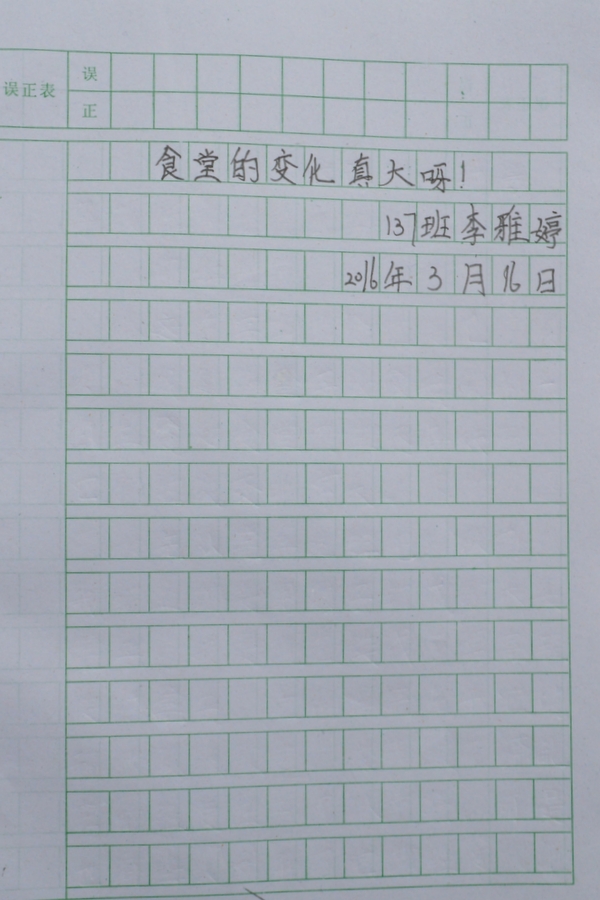 误正表
误
正
食堂的变化真大呀!
137班李雅婷
2016年3月16日